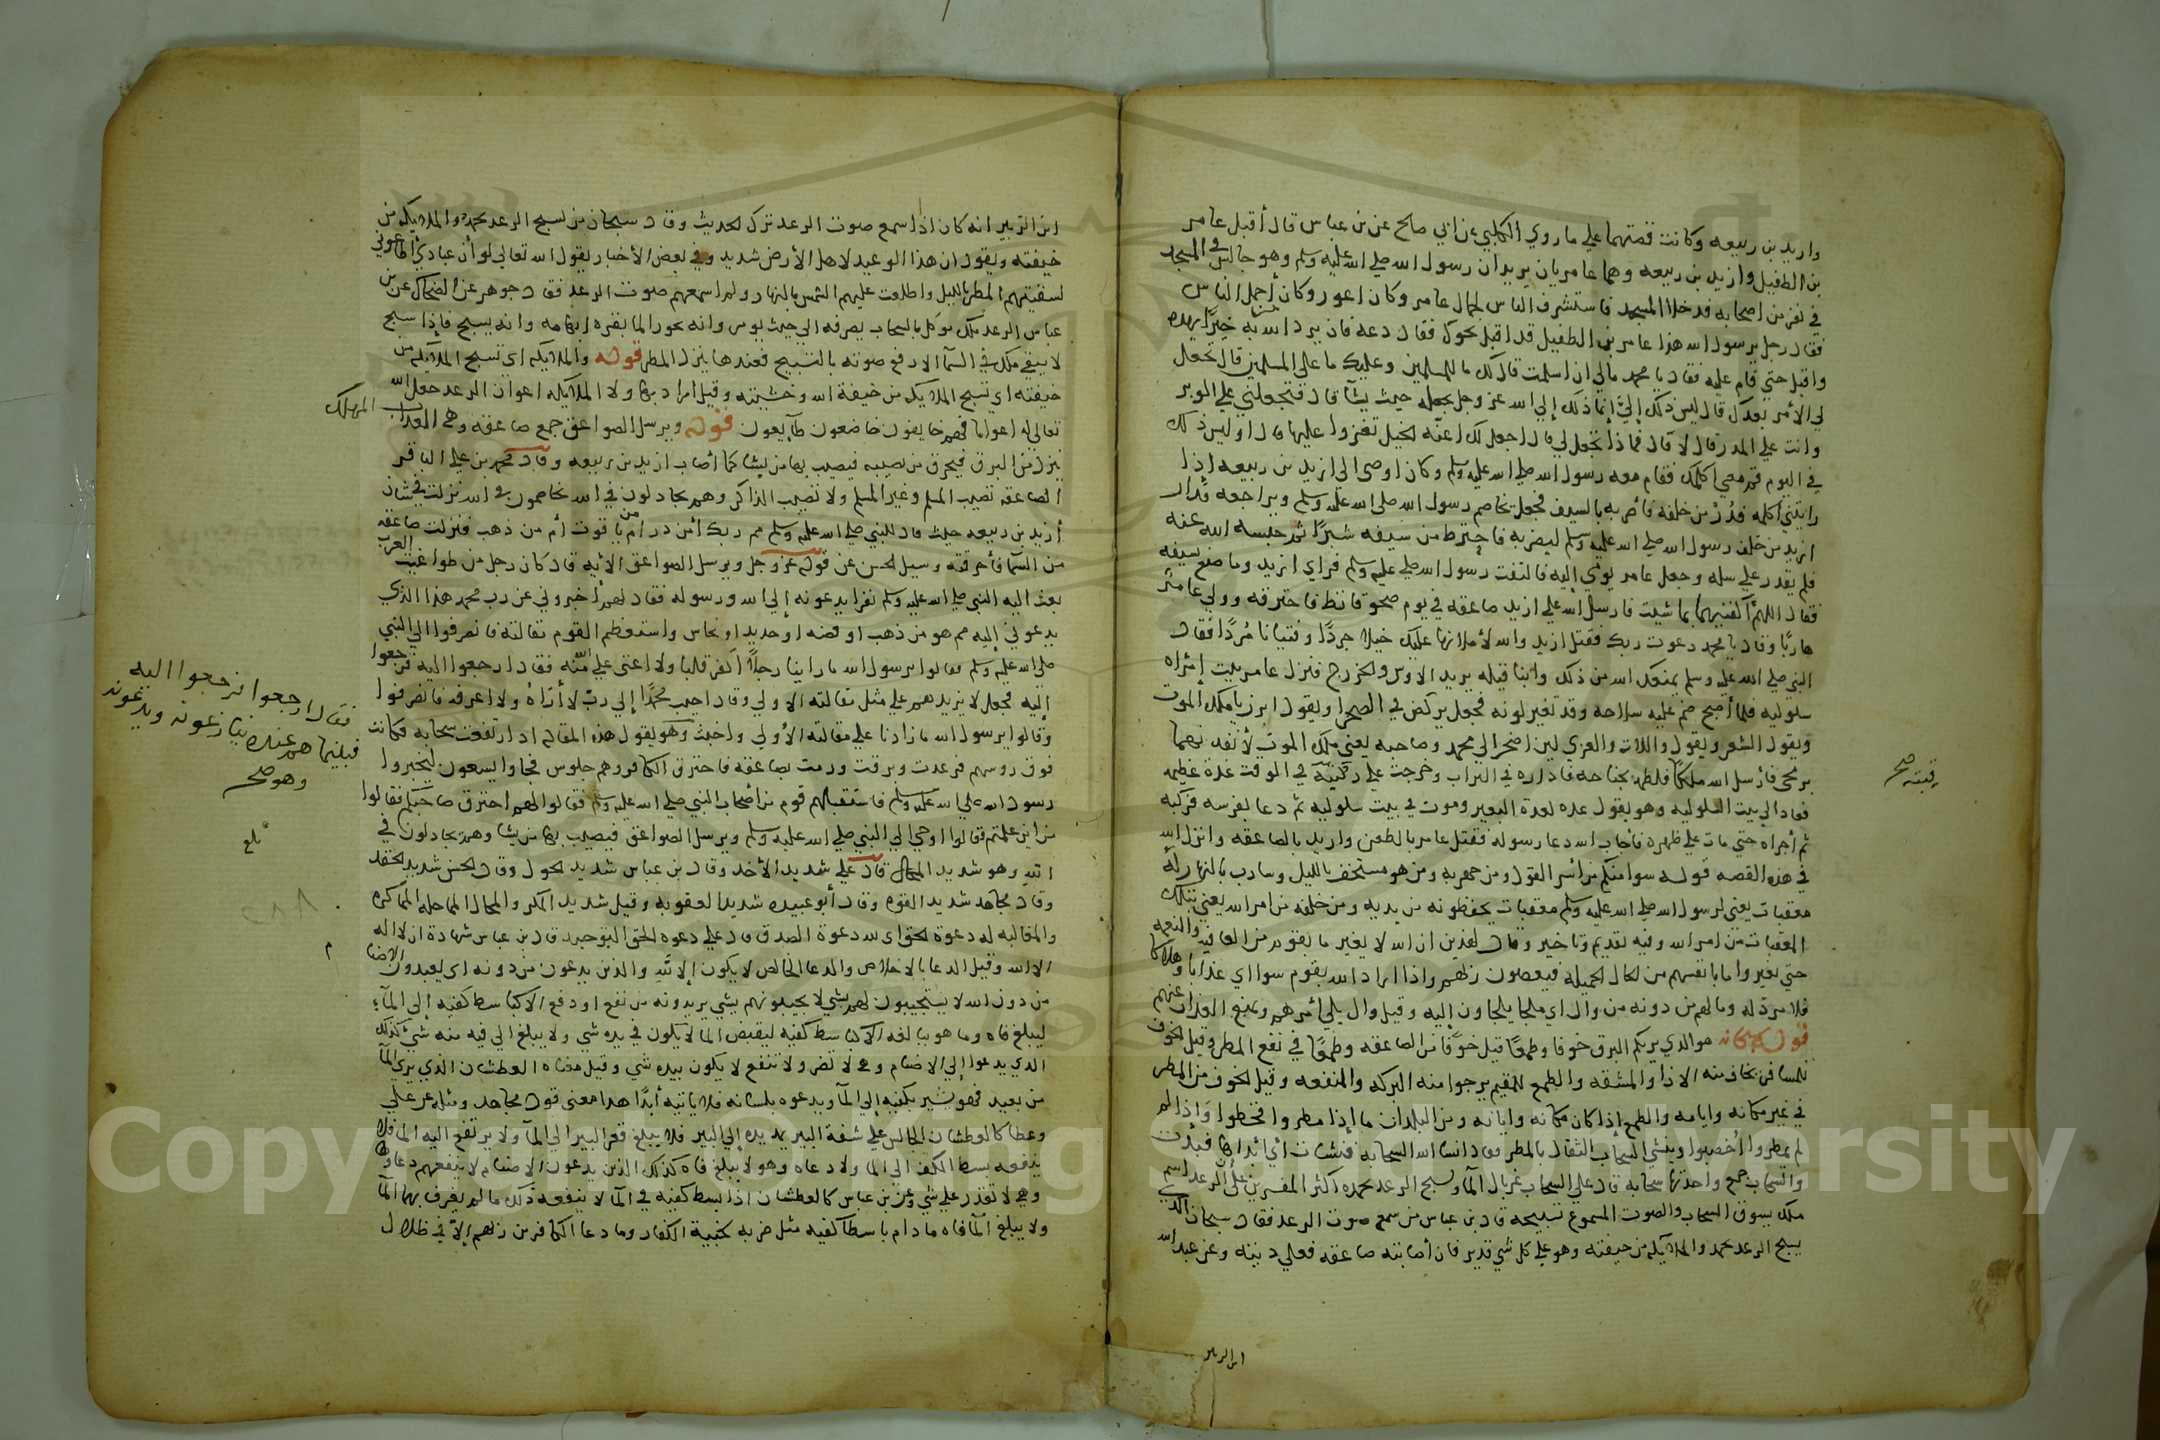 واربد بن ربيعه وكانت قصتهما علي ما روي الكلبي عن ابي صالح عن بن عباس قال أقبل عامر
بن الطفيل واربد بن ربيعه وهما عامريان يريدان رسول الله صلي الله عليه وسلم وهو جالس في المسجد
في نفر من اصحابه فدخلا المسجد فاستشرف الناس لجمال عامر وكان اعور وكان أجمل الناس
فقال رجل يرسول الله هذا عامر بن الطفيل قد اقبل نحوك فقال دعه فان يرد الله به خيرًا يهده
واقبل حتي قام عليه فقال يا محمد مالي ان اسلمت قال لك ما للمسلمين وعليك ما علي المسلمين قال تجعل
لي الأمر بعدك قال ليس ذلك إليَّ إنما ذلك إلي الله عز وجل يجعله حيث يشآ قال فتجعلني علي الوبر
وانت علي المدر قال لا قال فماذا تجعل لي قال اجعل لك اعنّه الخيل تغزوا عليها قال اوليس ذلك
في اليوم قم معي اكلمك فقام معه رسول الله صلي الله عليه وسلم وكان اوصي الي اربد بن ربيعه إذا
رايتني اكلمه فدُرْ من خلفه فأضربه بالسيف فجعل يخاصم رسول الله صلي الله عليه وسلم ويراجعه فدار
اربد من خلف رسول الله صلي الله عليه وسلم ليضربه فاخترط من سيفه شبرًا ثم حبسه الله عنه
فلم يقدر علي سله وجعل عامر يومي إليه فالتفت رسول الله صلي عليه وسلم فراي اربد وما صنع بسيفه
فقال اللهمَّ اكفنيهما بما شيت فارسل الله علي اربد صاعقه في يوم صحو قائظ فاحترقه وولي عامر
هاربًا وقال يا محمد دعوت ربك فقتل اربد والله لأملانها عليك خيلا جردًا وفتيانا مُردًا فقال
النبي صلي الله عليه وسلم يمنعك الله من ذلك وابنا قيله يريد الاوس والخزرج فنزل عامر بيت إمراه
سلوليه فلما أصبح ضم عليه سلاحه وقد تغير لونه فجعل يركض في الصحرا ويقول ابرز يا ملك الموت
ويقول الشعر ويقول واللات والعزي لين اضحر الي محمد وصاحبه يعني ملك الموت لأنفدنهما
برمحي فأرسل الله ملكًا فلطمه بجناحه فاداره في التراب وخرجت علي ركبتيه في الوقت غدة عظيمه
فعاد الي بيت السلوليه وهو يقول غده كغدة البعير وموت في بيت سلوليه ثم دعا بفرسه فركبه
ثم أجراه حتي مات علي ظهره فأجاب الله دعا رسوله فقتل عامر بالطعن واربد بالصاعقه وانزل الله
في هذه القصه قوله سوا منكم من أسر القول ومن جهر به ومن هو مستخف بالليل وسارب بالنهار له
معقبات يعني لرسول الله صلي الله عليه وسلم معقبات يحفظونه من بين يديه ومن خلفه من امر الله يعني تلك
المعقبات من امر الله وفيه تقديم وتاخير وقال لهذين ان الله لا يغير ما بقوم من العافيه والنعمه
حتي يغيروا ما بانفسهم من الحال الجميله فيعصون ربهم واذا اراد الله بقوم سوا اي عذابا وهلاكا
فلا مرد له وما لهم من دونه من وال اي ملجا يلجاون إليه وقيل وال يلي أمرهم ويمنع العذاب عنهم
هو الذي يريكم البرق خوفا وطمعًا قيل خوفًا من الصاعقه وطمعًا في نفع المطر وقيل الخوف
للمسافر يخاف منه الاذا والمشقه والطمع للمقيم يرجوا منه البركه والمنفعه وقيل الخوف من المطر
في غير مكانه وايامه والطمع إذا كان مكانه وايامه ومن البلدان ما إذا مطروا قحطوا وإذا لم
لم يمطروا أخصبوا وينشي السحاب الثقال بالمطر يقال انشا الله السحابه فنشات أي أبداها فبدت
والسحاب جمع واحدتها سحابه قال علي السحاب غربال المآ ويسبح الرعد بحمده أكثر المفسرين علي أن الرعد اسم
ملك يسوق السحاب والصوت المسموع تسبيحه قال بن عباس من سمع صوت الرعد فقال سبحان الذي
يسبح الرعد بحمده والملآيكه من خيفته وهو علي كل شي قدير فان أصابته صاعقه فعلي ديته وعن عبد الله
ابن الزبير
ركبته صح
ابن الزبير انه كان اذا سمع صوت الرعد ترك الحديث وقال سبحان من يسبح الرعد بحمده والملايكه من
خيفته ويقول ان هذا الوعيد لاهل الأرض شديد وفي بعض الأخبار يقول الله تعالي لو أن عبادي أطاعوني
لسقيتهم المطر بالليل واطلعت عليهم الشمس بالنهار ولم اسمعهم صوت الرعد فقال جوهر عن الضحاك عن بن
عباس الرعد ملك موكل بالسحاب يصرفه الي حيث يومر وانه بحور الما بنقره ابهامه وانه يسبح فإذا سبح
لا يبقي ملك في السمآ الا رفع صوته بالتسبيح فعندها ينزل المطر قوله والملايكه اي تسبح الملايكه من
خيفته اي تسبح الملايكه من خيفة الله وخشيته وقيل اراد بهاولا الملآيكه اعوان الرعد جعل الله
تعالي له اعوانا فهم خايفون خاضعون طآيعون قوله ويرسل الصواعق جمع صاعقه وهي العذاب المهلك
ينزل من البرق فيحرق من يصيبه فيصيب بها من يشا كما أصاب اربد بن ربيعه وقال محمد بن علي الباقر
الصاعقه تصيب المسلم وغير المسلم ولا تصيب الذاكر وهم يجادلون في الله يخاصمون في الله نزلت في شان
أربد بن ربيعه حيث قال للنبي صلي الله عليه وسلم مم ربك أمن در ام من ياقوت أم من ذهب فنزلت صاعقه
من السمآ فأحرقته وسيل الحسن عن قوله عز وجل ويرسل الصواعق الأيه قال كان رجل من طواغيت العرب
بعث اليه النبي صلي الله عليه وسلم نفرا يدعونه إلي الله ورسوله فقال لهم أخبروني عن رب محمد هذا الذي
يدعوني إليه مم هو من ذهب او فضه او حديد او نحاس واستعظم القوم مقالته فانصرفوا الي النبي
صلي الله عليه وسلم فقالوا يرسول الله ما راينا رجلًا اكفر قلبا ولا اعتي علي الله منّه فقال ارجعوا اليه فرجعوا
إليه فجعل لا يزيدهم علي مثل مقالته الاولي وقال اجيب محمدًا إلي ربّ لا أرَاهُ ولا اعرفه فانصرفوا
وقالوا يرسول الله ما زادنا علي مقالته الأولي واخبث وهو يقول هذه المقاله اذ ارتفعت سحابه فكانت
فوق روسهم فرعدت وبرقت ورمت بصاعقه فاحترق الكافر وهم جلوس فجاوا يسعون ليخبروا
رسول الله صلي الله عليه وسلم فاستقبلهم قوم من أصحاب النبي صلي الله عليه وسلم فقالوا لهم احترق صاحبكم فقالوا
من اين علمتم قالوا اوحي الي النبي صلي الله عليه وسلم ويرسل الصواعق فيصيب بها من يشا وهم يجادلون في
الله وهو شديد المحال قال علي شديد الأخذ وقال بن عباس شديد الحول وقال الحسن شديد الحقد
وقال مجاهد شديد القوه وقال أبو عبيده شديد العقوبه وقيل شديد المكر والمحال المماحله المماكره
والمغالبه له دعوة الحق اي لله دعوة الصدق قال علي دعوه الحق التوحيد قال بن عباس شهادة ان لا اله
الا الله وقيل الدعا بالاخلاص والدعا الخالص لا يكون إلا لله والذين يدعون من دونه اي يعبدون الاصنام
من دون الله لا يستجيبون لهم بشي لا يجيبونهم بشي يريدونه من نفع او دفع الا كباسط كفيه إلي المآ
ليبلغ فاه وما هو ببالغه الا كباسط كفيه ليقبض الما لا يكون في يده شي ولا يبلغ الي فيه منه شي كذلك
الذي يدعوا إلي الاصنام وهي لا تضر ولا تنفع لا يكون بيده شي وقيل معناه العطشان الذي يري المآ
من بعيد فهو يشير بكفيه إلي المآ ويدعوه بلسانه فلا ياتيه أبدًا هذا معني قول مجاهد ومثله عن علي
وعطا كالعطشان الجالس علي شفة البير يمد يده إلي البير فلا يبلغ قعر البير الي المآ ولا يرتفع اليه الما فلا
ينفعه بسط الكف الي الما ولا دعاه وهو لا يبلغ فاه كذلك الذين يدعون الاصنام لا ينفعهم دعاوها
وهي لا تقدر علي شي وعن بن عباس كالعطشان اذا بسط كفيه في المآ لا ينفعه ذلك ما لم يغرف بها المآ
ولا يبلغ المآ فاه ما دام باسطا كفيه مثل ضربه لخيبة الكفار وما دعا الكافرين ربهم إلاّ في ظلال
فقال ارجعوا فرجعوا اليه
فبينما هم عنده ينازعونه ويدعونه
وهو صح
بلغ
٢٨٨
م